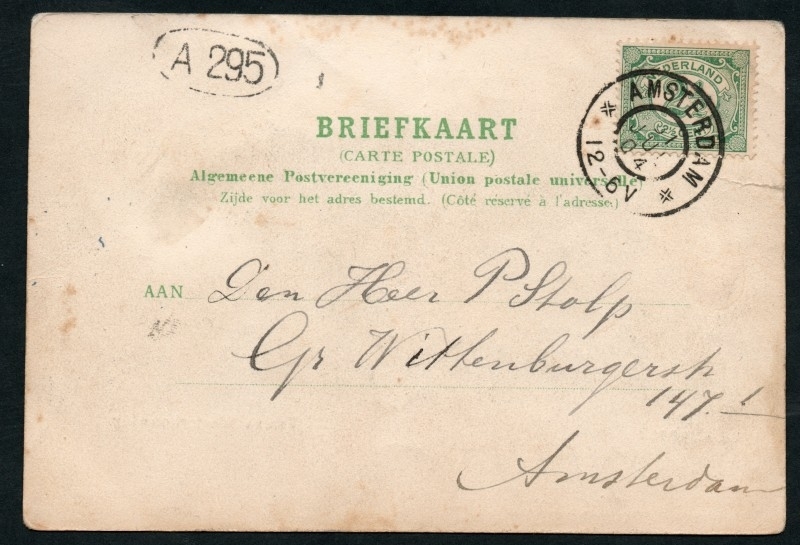 A 295
NEDERLAND
AMSTERDAM
04
12-6V
BRIEFKAART
(CARTE POSTALE)
Algemeene Postvereeniging (Union postale universelle)
Zijde voor het adres bestemd. (Côté réservé à l'adresse)
AAN Den Heer P Stolp
Gr Wittenburgerstr
147.I
Amsterdam